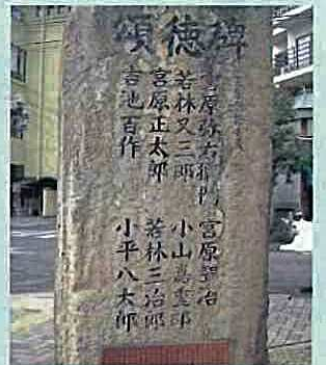 頌徳碑
宮原弥右衛門 宮原賢治
若林又三郎 小山嘉重郎
宮原正太郎 若林三治郎
吉池百作 小平八太郎